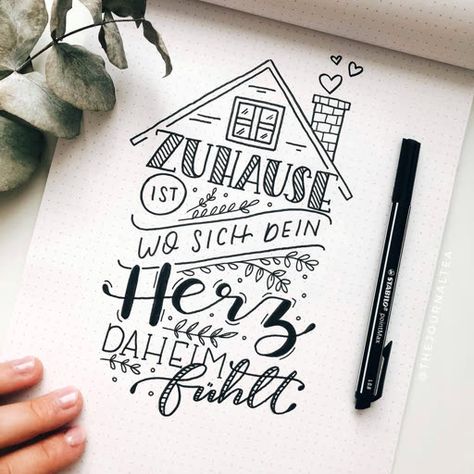 ZUHAUSE
IST
WO SICH DEIN
Herz
DAHEIM
fühlt
STABILO® pointMax
188
©THEJOURNALTEA